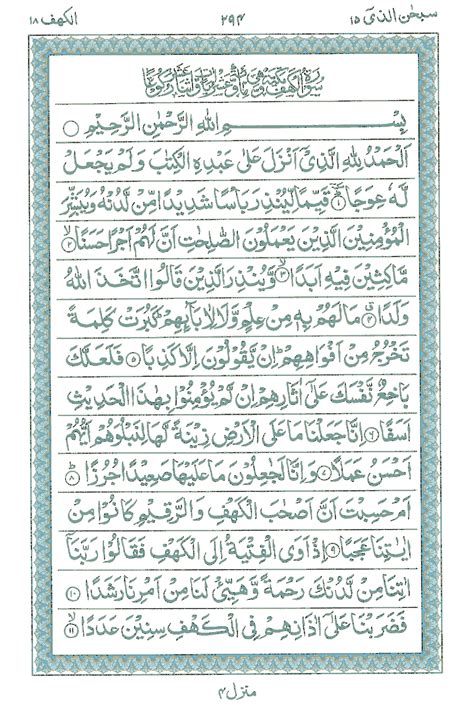 سبحٰن الذیٓ ۱۵
۲۹۴
الکهف ۱۸
سُوْرَةُ الْكَهْفِ مَكِّيَّةٌ وَّهِيَ
بِسْمِ اللهِ الرَّحْمٰنِ الرَّحِيْمِ
اَلْحَمْدُ لِلّٰهِ الَّذِيْٓ اَنْزَلَ عَلٰى عَبْدِهِ الْكِتٰبَ وَلَمْ يَجْعَلْ
لَّهٗ عِوَجًا ۱ قَيِّمًا لِّيُنْذِرَ بَاْسًا شَدِيْدًا مِّنْ لَّدُنْهُ وَيُبَشِّرَ
الْمُؤْمِنِيْنَ الَّذِيْنَ يَعْمَلُوْنَ الصّٰلِحٰتِ اَنَّ لَهُمْ اَجْرًا حَسَنًا ۲
مَّاكِثِيْنَ فِيْهِ اَبَدًا ۳ وَّيُنْذِرَ الَّذِيْنَ قَالُوا اتَّخَذَ اللهُ
وَلَدًا ۴ مَا لَهُمْ بِهٖ مِنْ عِلْمٍ وَّلَا لِاٰبَآئِهِمْ كَبُرَتْ كَلِمَةً
تَخْرُجُ مِنْ اَفْوَاهِهِمْ اِنْ يَّقُوْلُوْنَ اِلَّا كَذِبًا ۵ فَلَعَلَّكَ
بَاخِعٌ نَّفْسَكَ عَلٰٓى اٰثَارِهِمْ اِنْ لَّمْ يُؤْمِنُوْا بِهٰذَا الْحَدِيْثِ
اَسَفًا ۶ اِنَّا جَعَلْنَا مَا عَلَى الْاَرْضِ زِيْنَةً لَّهَا لِنَبْلُوَهُمْ اَيُّهُمْ
اَحْسَنُ عَمَلًا ۷ وَاِنَّا لَجٰعِلُوْنَ مَا عَلَيْهَا صَعِيْدًا جُرُزًا ۸
اَمْ حَسِبْتَ اَنَّ اَصْحٰبَ الْكَهْفِ وَالرَّقِيْمِ كَانُوْا مِنْ
اٰيٰتِنَا عَجَبًا ۹ اِذْ اَوَى الْفِتْيَةُ اِلَى الْكَهْفِ فَقَالُوْا رَبَّنَآ
اٰتِنَا مِنْ لَّدُنْكَ رَحْمَةً وَّهَيِّئْ لَنَا مِنْ اَمْرِنَا رَشَدًا ۱۰
فَضَرَبْنَا عَلٰٓى اٰذَانِهِمْ فِي الْكَهْفِ سِنِيْنَ عَدَدًا ۱۱
منزل ۴